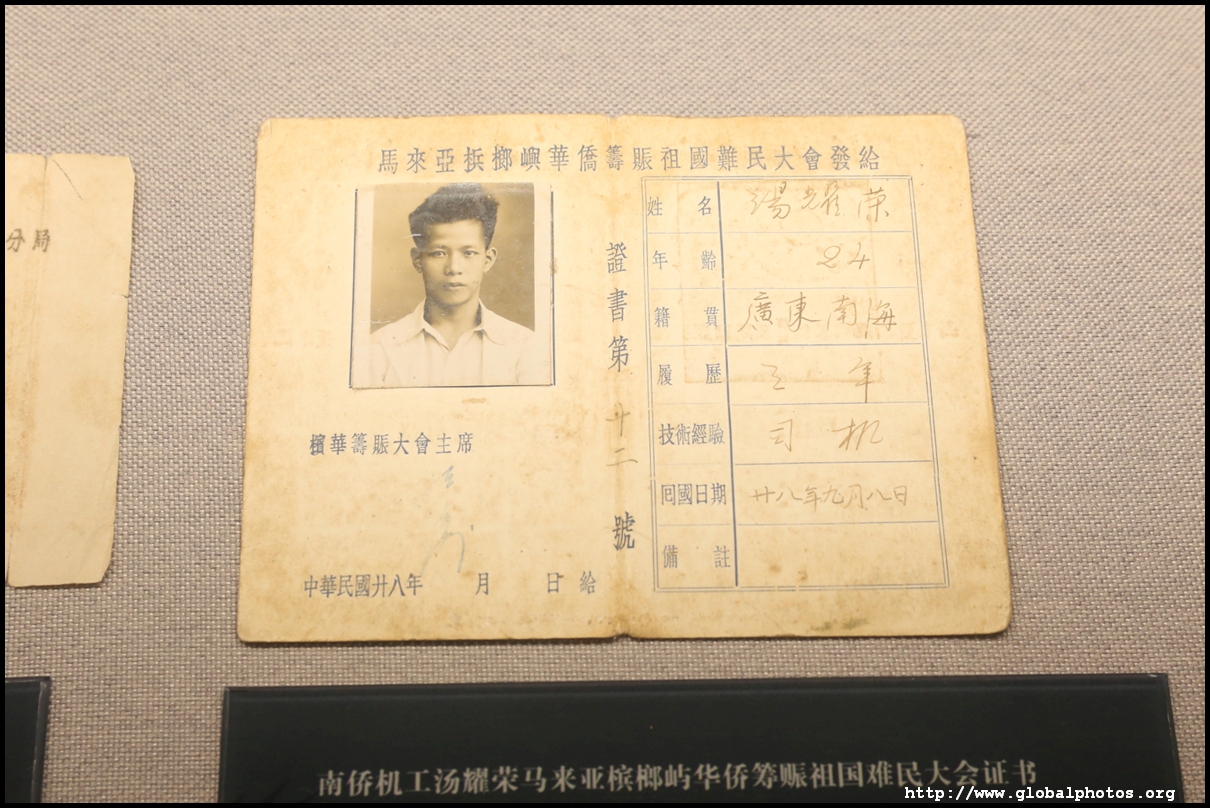 分局
馬來亞梹榔嶼華僑籌賑祖國難民大會發給
檳華籌賑大會主席
中華民國廿八年 月 日給
證書第廿二號
姓名 湯耀荣
年齡 24
籍貫 廣東南海
履歷 三年
技術經驗 司机
囘國日期 廿八年九月八日
備註
南侨机工汤耀荣马来亚槟榔屿华侨筹赈祖国难民大会证书
http://www.globalphotos.org